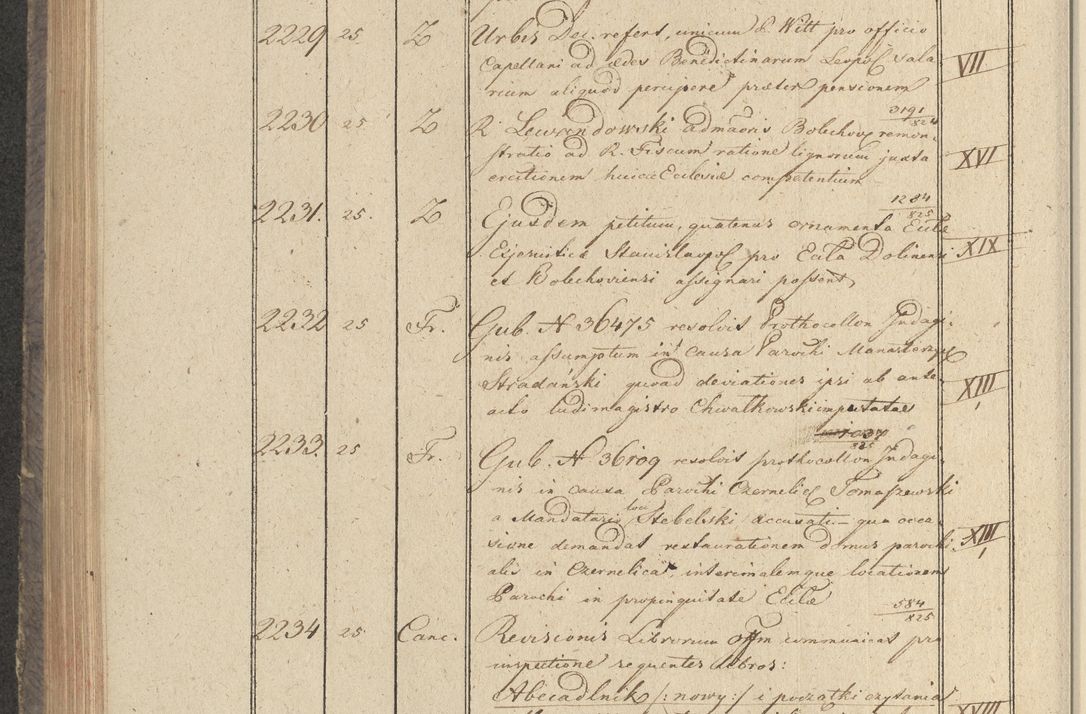 2229 25 Z Urbis Dec. refert, unicum P. Witt pro officio
Capellani ad ædes Benedictinarum Leopol sala- VII
rium aliquod percipere præter pensionem
3191/824
2230 25 Z R. Lewandowski Admaoris Bolechov remon-
stratio ad R. Fiscum ratione lignorum juxta XVI
erectionem huic Ecclesiæ competentium
1284/825
2231. 25. Z Ejusdem petitum, quatenus ornamenta Eccle
Exjesuitica Stanislavpol pro Eccla Dolinensi XIX
et Bolechoviensi assignari possent
2232 25 Fr. Gub. N 36475 resolvit Prothocollon Indagi-
nis assumptum in causa Parochi Manasterzys
Stradański quoad deviationes ipsi ab ante- XIII
acto ludimagistro Chwatkowski imputatas
2233. 25 Fr. Gub. N 36109 resolvit prothocollon Indagi-
nis in causa Parochi Czernelic Tomaszewski
a Mandatario loci Stebelski accusati qua occa-
sione demandat restaurationem domus parochi- XIII
alis in Czernelica, interimalemque locationem
Parochi in propinquitate Eccle
584/825
2234 25 Canc. Revisionis Librorum offm communicat pro
inspectione sequentes libros:
Abecadlnik /: nowy :/ i początki czytania XVIII